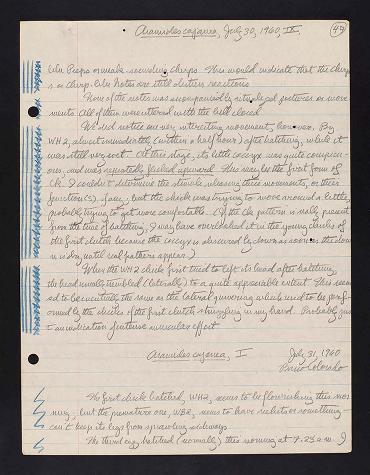 Aramides cajanea, July 30, 1960, IV. (49)
like Peeps or make sounding Chirps. This would indicate that the Chirp
s or Chirp-like Notes are still distress reactions
None of the notes was accompanied by stylized postures or move
ments. All of them were uttered with the bill closed
We did notice one very interesting movement, however. By
WH2, almost immediately (within a half hour) after hatching, while it
was still very wet. At this stage, its little coccyx was quite conspicu-
ous, and was repeatedly flicked upward. This may be the first form of
I couldn't determine the stimuli releasing these movements, or their
function(s), if any; but the chick was trying to move around a little,
probably trying to get more comfortable. (If the pattern is really present
from the time of hatching, I may have overlooked it in the young chicks of
the first clutch because the coccyx is obscured by down as soon as the dow
n is dry until real feathers appear.)
When the WH2 chick first tried to lift its head after hatching,
the head usually trembled (laterally) to a quite appreciable extent. This seem
ed to be exactly the same as the lateral quivering which used to be perf-
ormed by the chicks of the first clutch struggling in my hand. Probably jus
t an indication of intense muscular effort
Aramides cajanea, I July 31, 1960
Barro Colorado
The first chick hatched, WH2, seems to be flourishing this mor
ning, but the premature one, WB2, seems to have rickets or something –
can't keep its legs from sprawling sideways
The third egg hatched (normally) this morning at 7.23 a.m. I